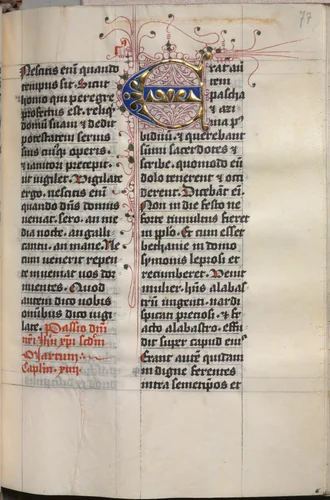 77
Nescitis enim quando
tempus sit. Sicut
homo qui peregre
profectus est. reliqͥt
domū suam & dedit
potestatem seruis
suis cuiusqȝ operis.
& ianitori precepit
ut vigilet. Vigilate
ergo. nescitis em̄
quando dn̄s domus
ueniat. sero. an me
dia nocte. an galli
cantu. an mane. Ne
cum uenerit repen
te inueniat uos dor
mientes. Quod
autem dico uobis
omībus dico vigi
late. Passio dn̄i
nr̄i ihū xp̄i scd̄m
Marcum.
Caplm̄. xiiii.
Erat aut̄
tem
pascha
& azi
ma p⁹
biduū. & querebant
sūmi sacerdotes &
scribe. quomodo eū
dolo tenerent & occi
derent. Dicebāt em̄
Non in die festo ne
forte tumultus fieret
in pplo. Et cum esset
bethanie in domo
symonis leprosi et
recumberet. Venit
mulier. hn̄s alabas
trū ungenti. nardi
spicati preciosi. & fr
acto alabastro. effu
dit super caput eius
Erant autē quidam
indigne ferentes
intra semetip̄os et